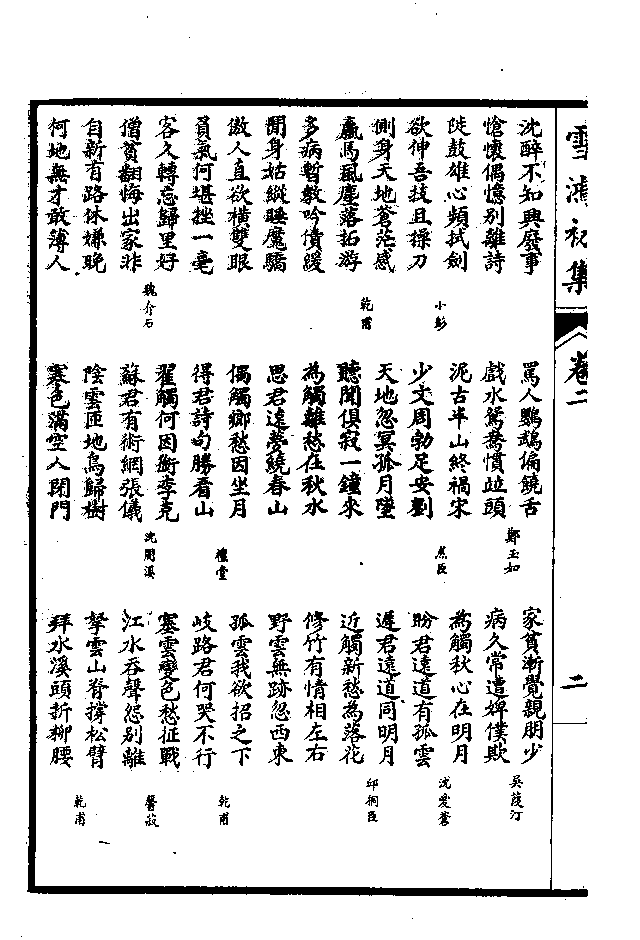 雪鴻初集
卷二
二
沈醉不知興廢事
愴懷偶憶別離詩
陡鼓雄心頻拭劍
欲伸吾技且操刀
小彭
側身天地蒼茫感
羸馬風塵落拓游
乾甫
多病暫教吟債緩
閒身姑縱睡魔驕
傲人直欲橫雙眼
負氣何堪挫一毫
客久轉忘歸里好
僧貧翻悔出家非
魏介石
自新有路休嫌晚
何地無才敢薄人
罵人鸚鵡偏饒舌
戲水鴛鴦慣竝頭
鄭玉如
泥古半山終禍宋
少文周勃足安劉
焦臣
天地忽冥孤月墮
聽聞俱寂一鐘來
為觸離愁在秋水
思君遠夢繞春山
偶觸鄉愁因坐月
得君詩句勝看山
禮堂
翟觸何因銜李克
蘇君有術網張儀
沈 溪
陰雲匝地鳥歸樹
寒色滿空人閉門
家貧漸覺親朋少
病久常遭婢僕欺
吳葭汀
為觸秋心在明月
盼君遠道有孤雲
沈愛蒼
遲君遠道同明月
近觸新愁為落花
邱桐臣
修竹有情相左右
野雲無跡忽西東
孤雲我欲招之下
岐路君何哭不行
乾甫
塞雲變色愁征戰
江水吞聲怨別離
拏雲山脊撐松臂
拜水溪頭折柳腰
乾甫